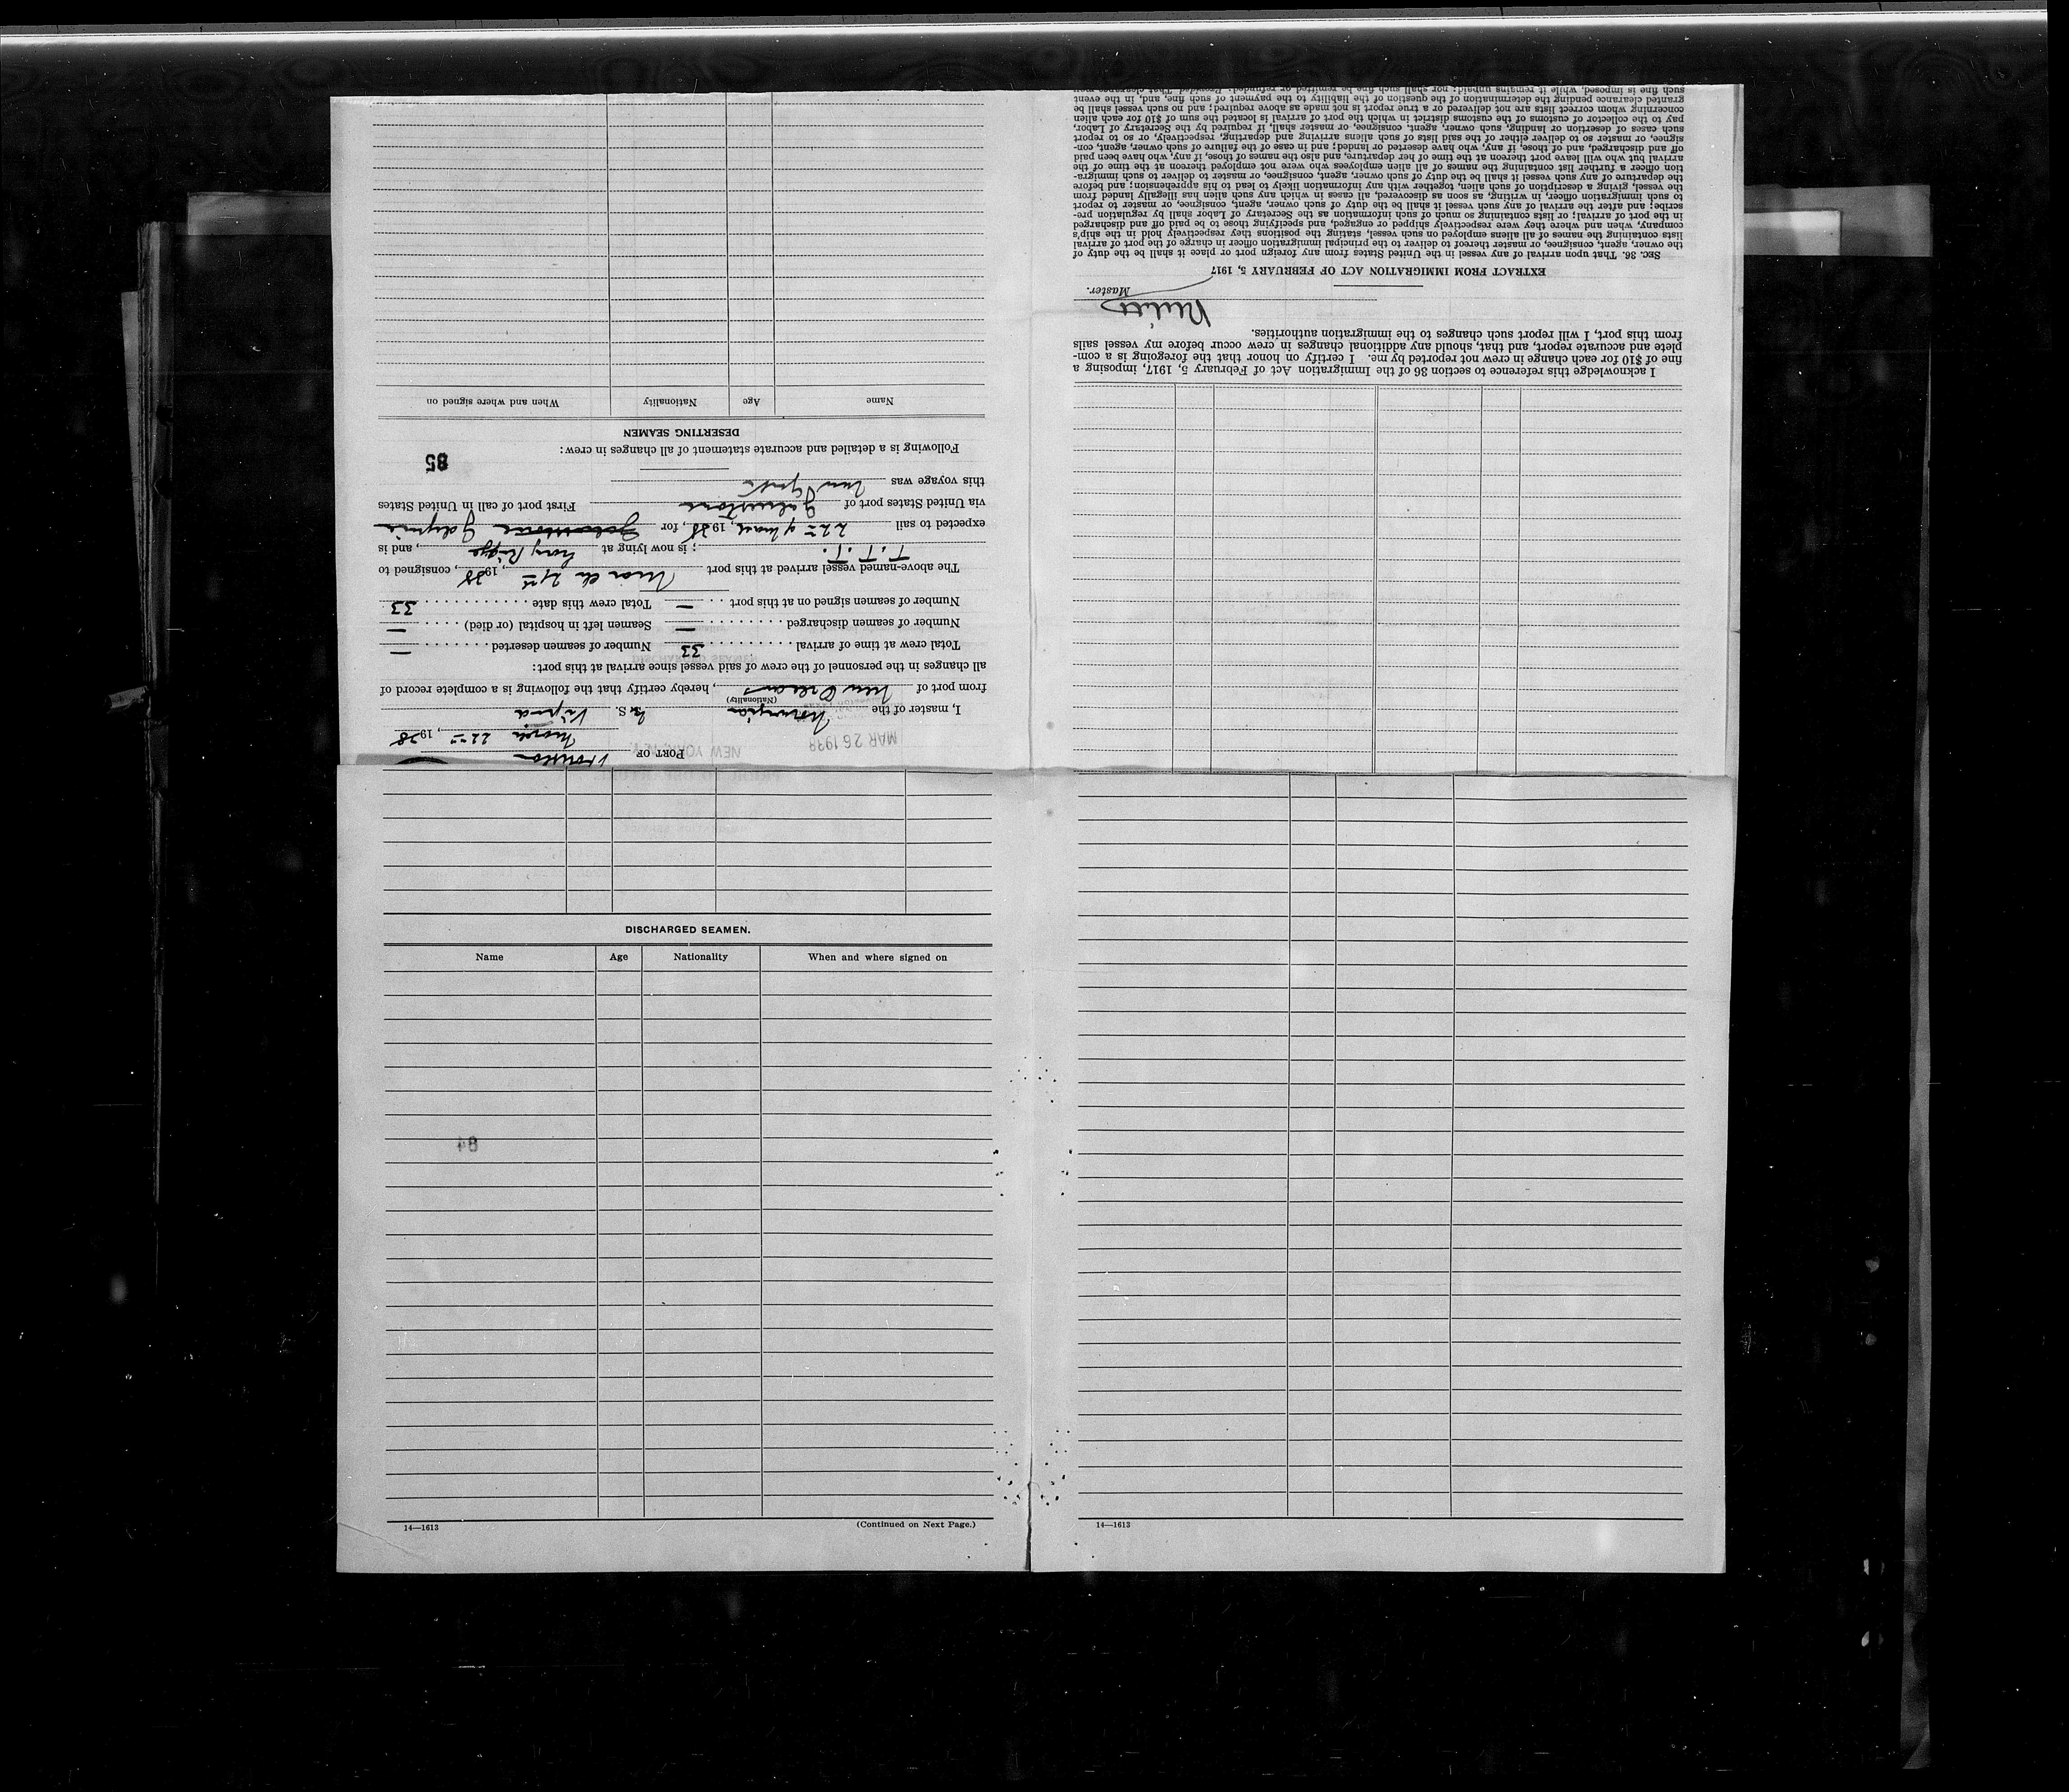 PORT OF Houston
March 22nd, 1938
MAR 26 1938
NEW YORK, N.Y.
I, master of the Norwegian S.
(Nationality)
from port of New Orleans, hereby certify that the following is a complete record of
all changes in the personnel of the crew of said vessel since arrival at this port:
Total crew at time of arrival 33 Number of seamen deserted —
Number of seamen discharged — Seamen left in hospital (or died) —
Number of seamen signed on at this port — Total crew this date 33
The above-named vessel arrived at this port March 21st, 1938, consigned to
T.T.T.; is now lying at Long Reach, and is
expected to sail 22nd of March, 1938, for Gdynia
via United States port of Galveston First port of call in United States
this voyage was New York
Following is a detailed and accurate statement of all changes in crew:
85
DESERTING SEAMEN
Name Age Nationality When and where signed on
I acknowledge this reference to section 36 of the Immigration Act of February 5, 1917, imposing a
fine of $10 for each change in crew not reported by me. I certify on honor that the foregoing is a com-
plete and accurate report, and that, should any additional changes in crew occur before my vessel sails
from this port, I will report such changes to the immigration authorities.
Master.
EXTRACT FROM IMMIGRATION ACT OF FEBRUARY 5, 1917
SEC. 36. That upon arrival of any vessel in the United States from any foreign port or place it shall be the duty of
the owner, agent, consignee, or master thereof to deliver to the principal immigration officer in charge of the port of arrival
lists containing the names of all aliens employed on such vessel, stating the positions they respectively hold in the ship's
company, when and where they were respectively shipped or engaged, and specifying those to be paid off and discharged
in the port of arrival; or lists containing so much of such information as the Secretary of Labor shall by regulation pre-
scribe; and after the arrival of any such vessel it shall be the duty of such owner, agent, consignee, or master to report
to such immigration officer, in writing, as soon as discovered, all cases in which any such alien has illegally landed from
the vessel, giving a description of such alien, together with any information likely to lead to his apprehension; and before
the departure of any such vessel it shall be the duty of such owner, agent, consignee, or master to deliver to such immigra-
tion officer a further list containing the names of all alien employees who were not employed thereon at the time of the
arrival but who will leave port thereon at the time of her departure, and also the names of those, if any, who have been paid
off and discharged, and of those, if any, who have deserted or landed; and in case of the failure of such owner, agent, con-
signee, or master so to deliver either of the said lists of such aliens arriving and departing, respectively, or so to report
such cases of desertion or landing, such owner, agent, consignee, or master shall, if required by the Secretary of Labor,
pay to the collector of customs of the customs district in which the port of arrival is located the sum of $10 for each alien
concerning whom correct lists are not delivered or a true report is not made as above required; and no such vessel shall be
granted clearance pending the determination of the question of the liability to the payment of such fine, and, in the event
such fine is imposed, while it remains unpaid; nor shall such fine be remitted or refunded: Provided, That clearance may
DISCHARGED SEAMEN.
Name Age Nationality When and where signed on
84
14—1613
(Continued on Next Page.)
14—1613